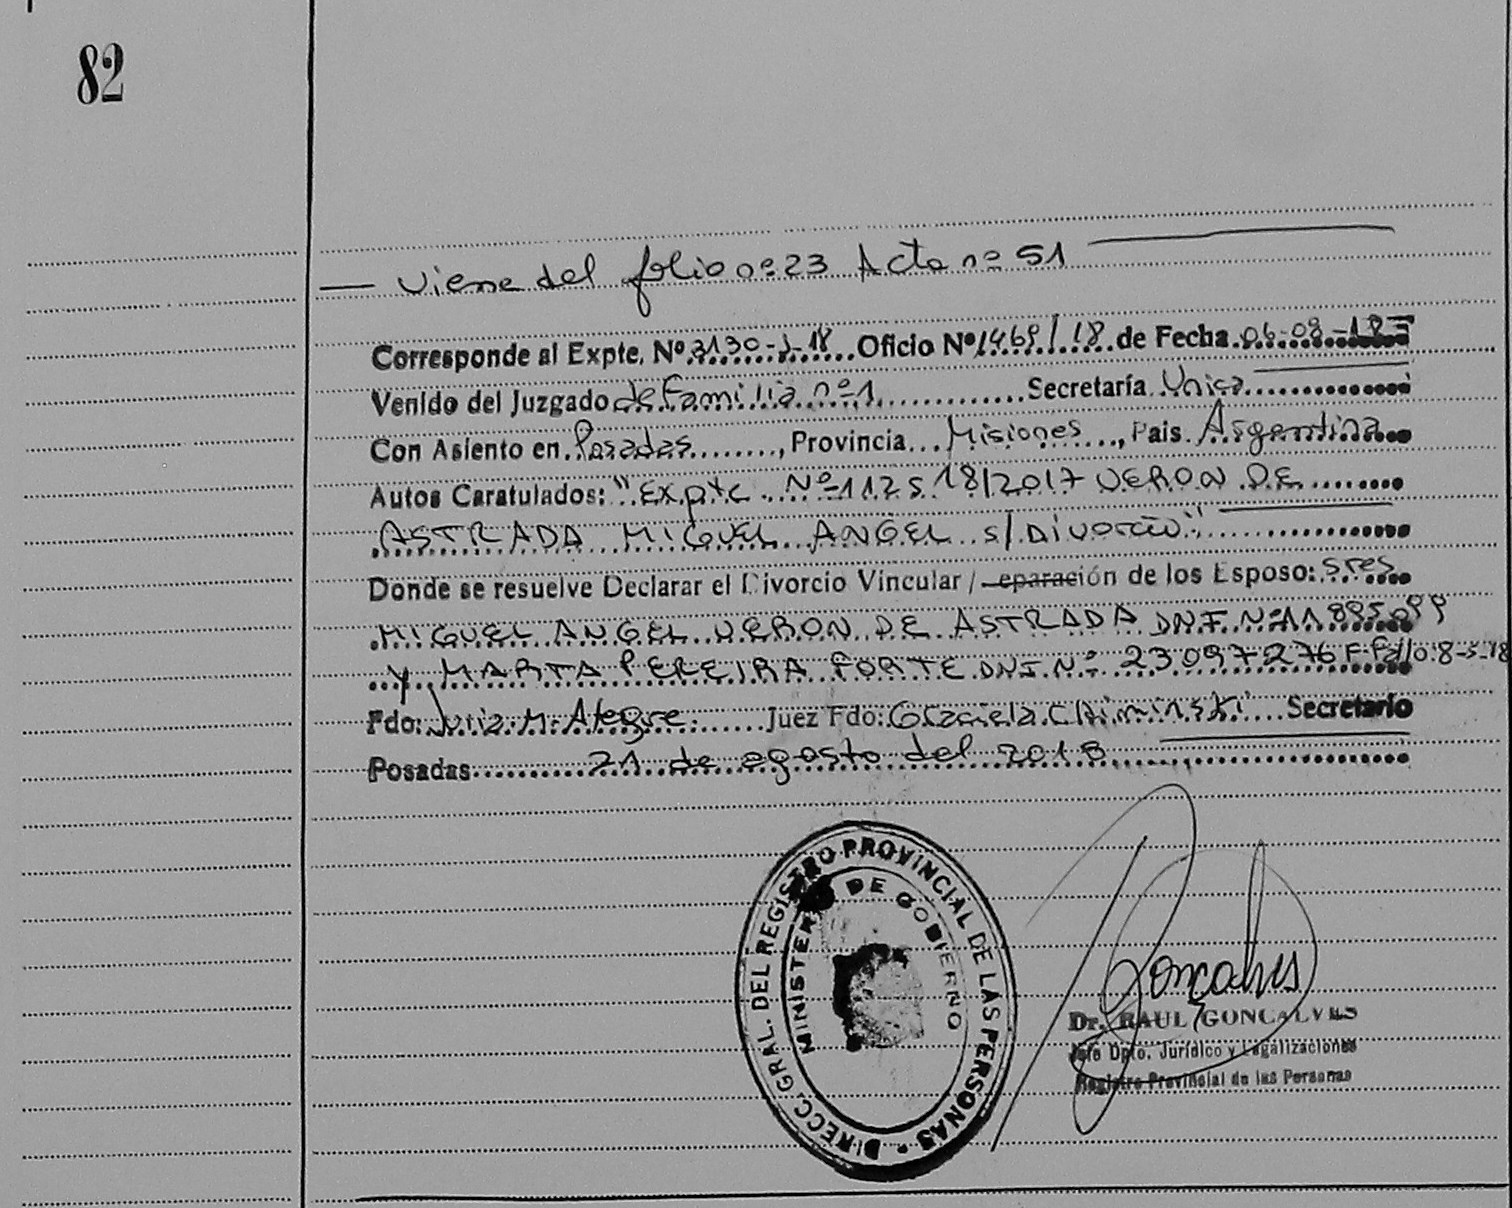 82
— Viene del folio nº 23 Acta nº 51
Corresponde al Expte. Nº 3130-J-18 Oficio Nº 1469/18 de Fecha 06-08-18
Venido del Juzgado de Familia nº 1 Secretaría Unica
Con Asiento en Posadas, Provincia Misiones, Pais Argentina
Autos Caratulados: "Expte Nº 112518/2017 VERON DE
ASTRADA MIGUEL ANGEL s/ Divorcio"
Donde se resuelve Declarar el Divorcio Vincular / eparación de los Esposo: sres
MIGUEL ANGEL VERON DE ASTRADA DNI Nº 11895099
Y MARTA PEREIRA FORTE DNI Nº 23097276 F. Fallo 8-5-18
Fdo: Juiz. M. Alegre. Juez Fdo: Graciela Chiminski Secretario
Posadas 21 de agosto del 2018
DIRECC. GRAL. DEL REGISTRO PROVINCIAL DE LAS PERSONAS
MINISTERIO DE GOBIERNO
Gonçalves
Dr. RAUL GONCALVES
Jefe Dpto. Jurídico y Legalizaciones
Registro Provincial de las Personas